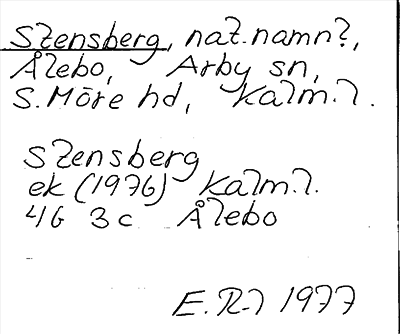 Stensberg, nat.namn?,
Ålebo, Arby sn,
S. Möre hd, Kalm. l.
Stensberg
ek (1976) Kalm. l.
4G 3c Ålebo
E. R-l 1977